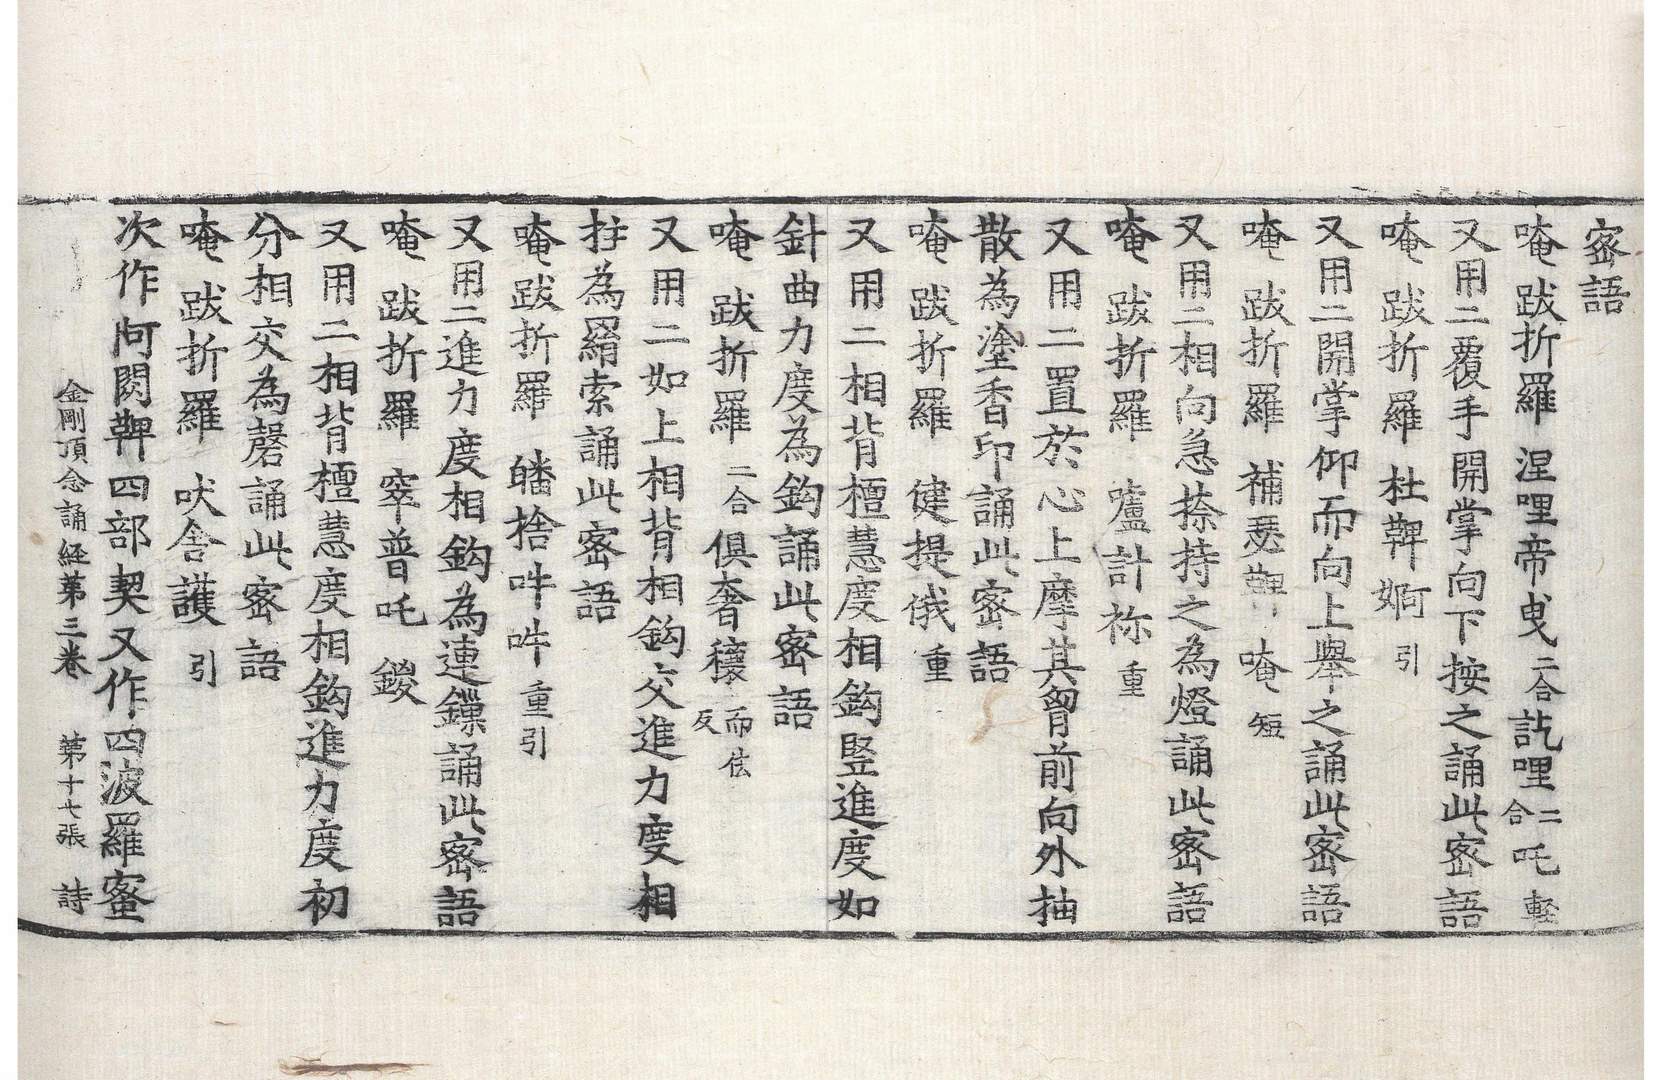 密語
唵跋折羅 涅哩帝曳二合訖哩二合吒輕
又用二覆手開掌向下按之誦此密語
唵 跋折羅 杜鞞婀引
又用二開掌仰而向上舉之誦此密語
唵 跋折羅 補瑟鞞 唵短
又用二相向急捺持之為燈誦此密語
唵 跋折羅 嚧計祢重
又用二置於心上摩其胷前向外抽
散為塗香印誦此密語
唵 跋折羅 健提俄重
又用二相背檀慧度相鈎竪進度如
針曲力度為鈎誦此密語
唵 跋折羅二合俱奢穰而佉反
又用二如上相背相鈎交進力度相
拄為羂索誦此密語
唵 跋折羅 皤捨吽吽重引
又用二進力度相鈎為連鏁誦此密語
唵 跋折羅 窣普吒 鑁
又用二相背檀慧度相鈎進力度初
分相交為磬誦此密語
唵 跋折羅 吠舎護引
次作阿閦鞞四部契又作四波羅蜜
金剛頂念誦経第三巻 第十七張 詩